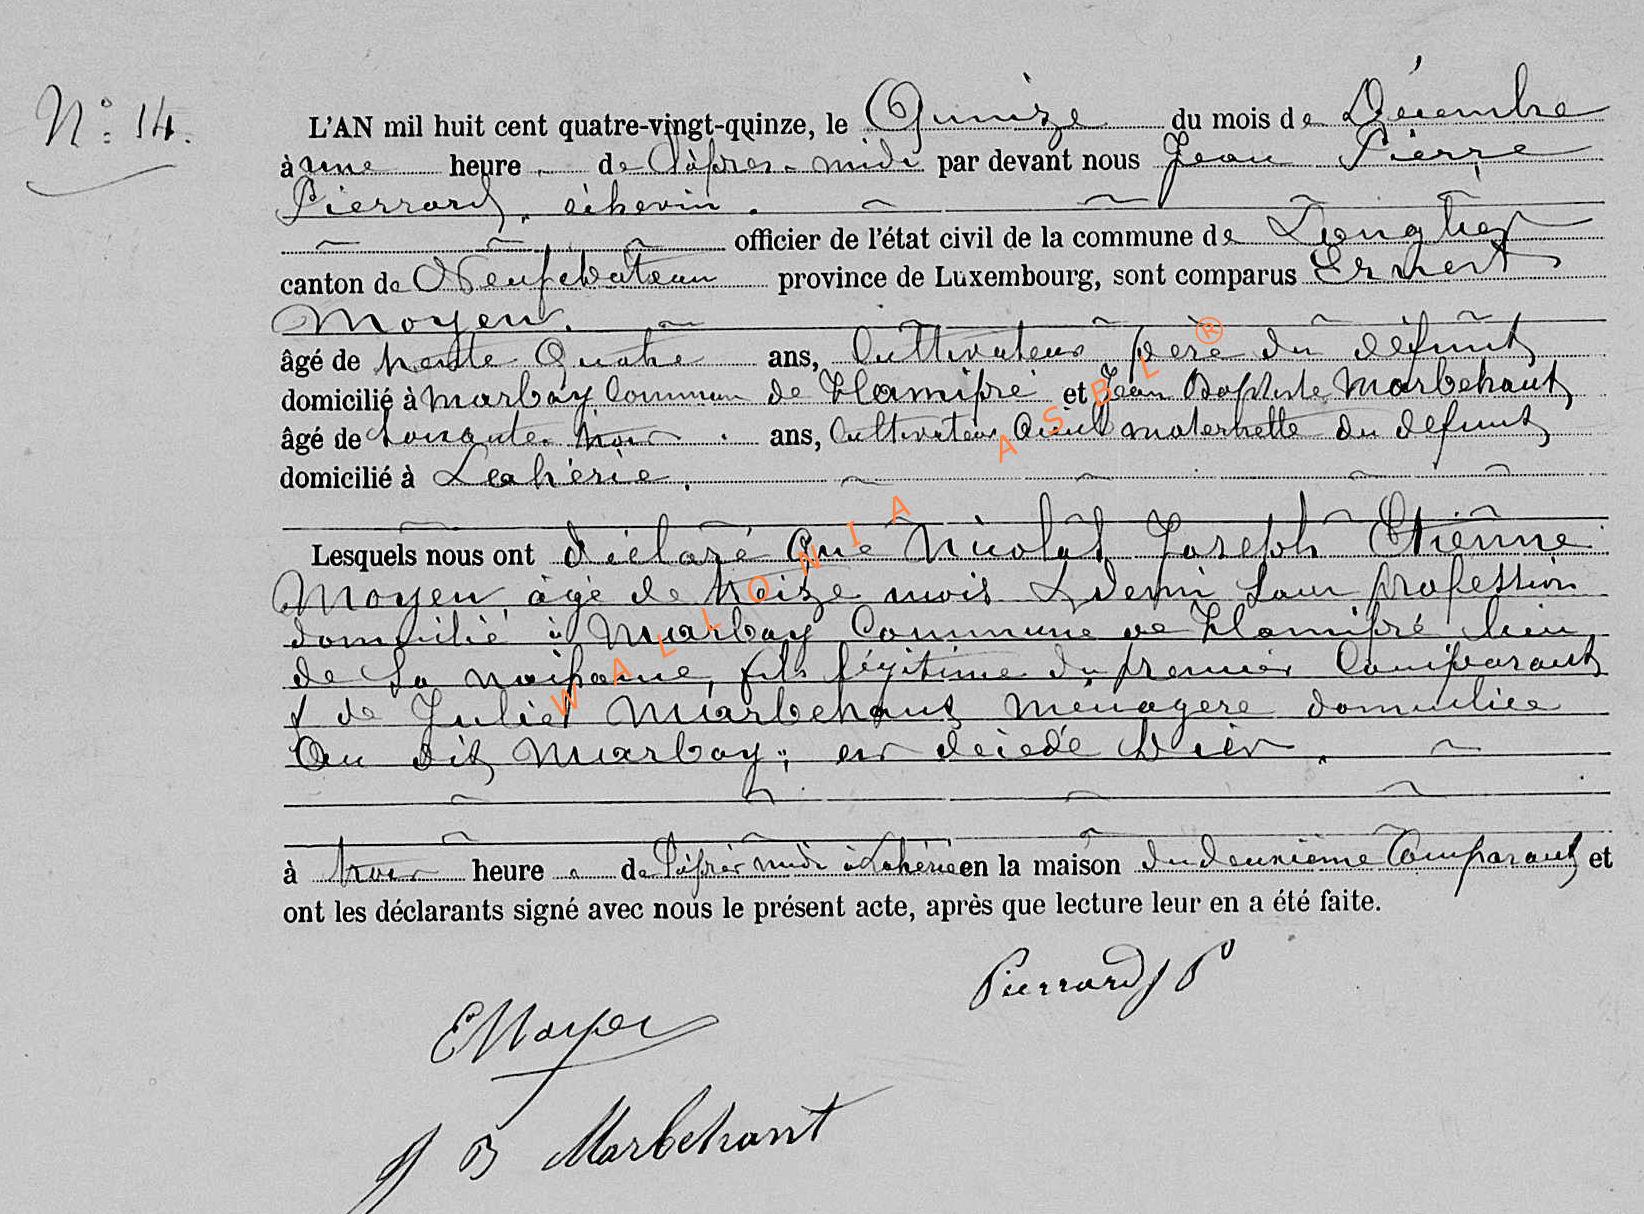 N° 14.
L'AN mil huit cent quatre-vingt-quinze, le Quinze du mois de Décembre
à une heure de l'après-midi par devant nous Jean Pierre
Pierrard, échevin.
officier de l'état civil de la commune de Longlier
canton de Neufchateau province de Luxembourg, sont comparus Ernest
Moyen.
âgé de trente Quatre ans, Cultivateur père du défunt
domicilié à Marbay Commune de Hamipré et Jean Baptiste Marbehant
âgé de soixante trois ans, Cultivateur aieul maternelle du defunt
domicilié à Lahérie.
Lesquels nous ont déclaré Que Nicolas Joseph Etienne
Moyen, âgé de treize mois & demi sans profession
domicilié à Marbay Commune de Hamipré lieu
de sa naissance, fils légitime du premier Comparant
& de Juliet Marbehant ménagère domiciliée
Au dit Marbay; est décédé hier.
à trois heure de l'après midi à Lahérie en la maison du deuxième Comparant et
ont les déclarants signé avec nous le présent acte, après que lecture leur en a été faite.
Pierrard J P
E Moyen
J B Marbehant
WALLONIA ASBL ®